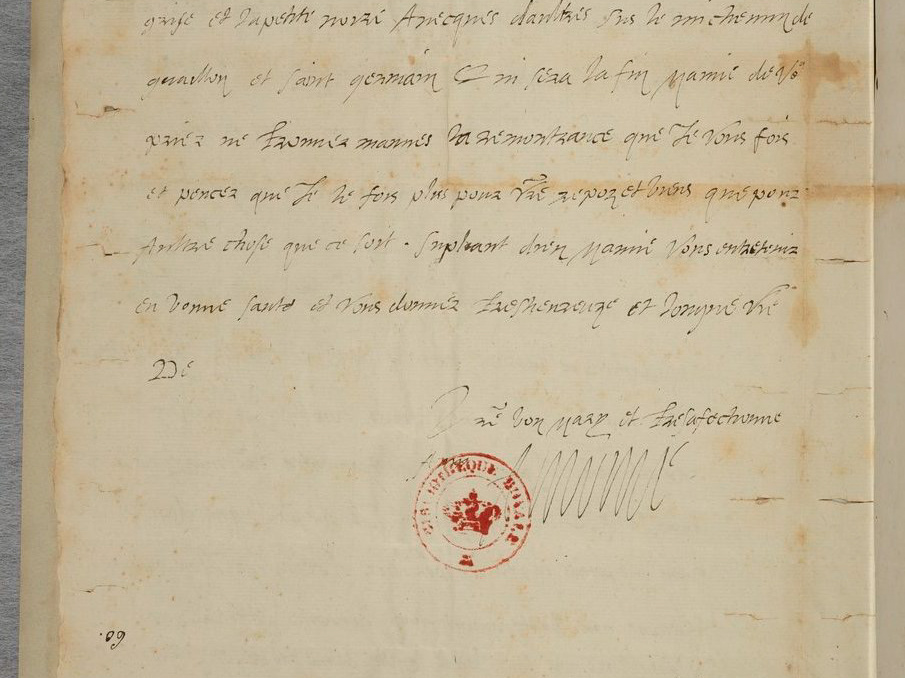 grise et lapetite noire Avecques daultres sus le mi chemin de
guaillon et saint germain Qui sera la fin Mamie de Vo9
prier ne trouver mauves la remontrance que Je Vous fois
et pencer que Je le fois plus pour Vre repoz et biens que pour
Aultre chose que ce soit . Supliant dieu Mamie Vous entretenir
en bonne sante et Vous donner treshereuze et longue Vie
De
Vre bon Mary et tresafectionne
Amy
BIBLIOTHEQUE ROYALE
.09